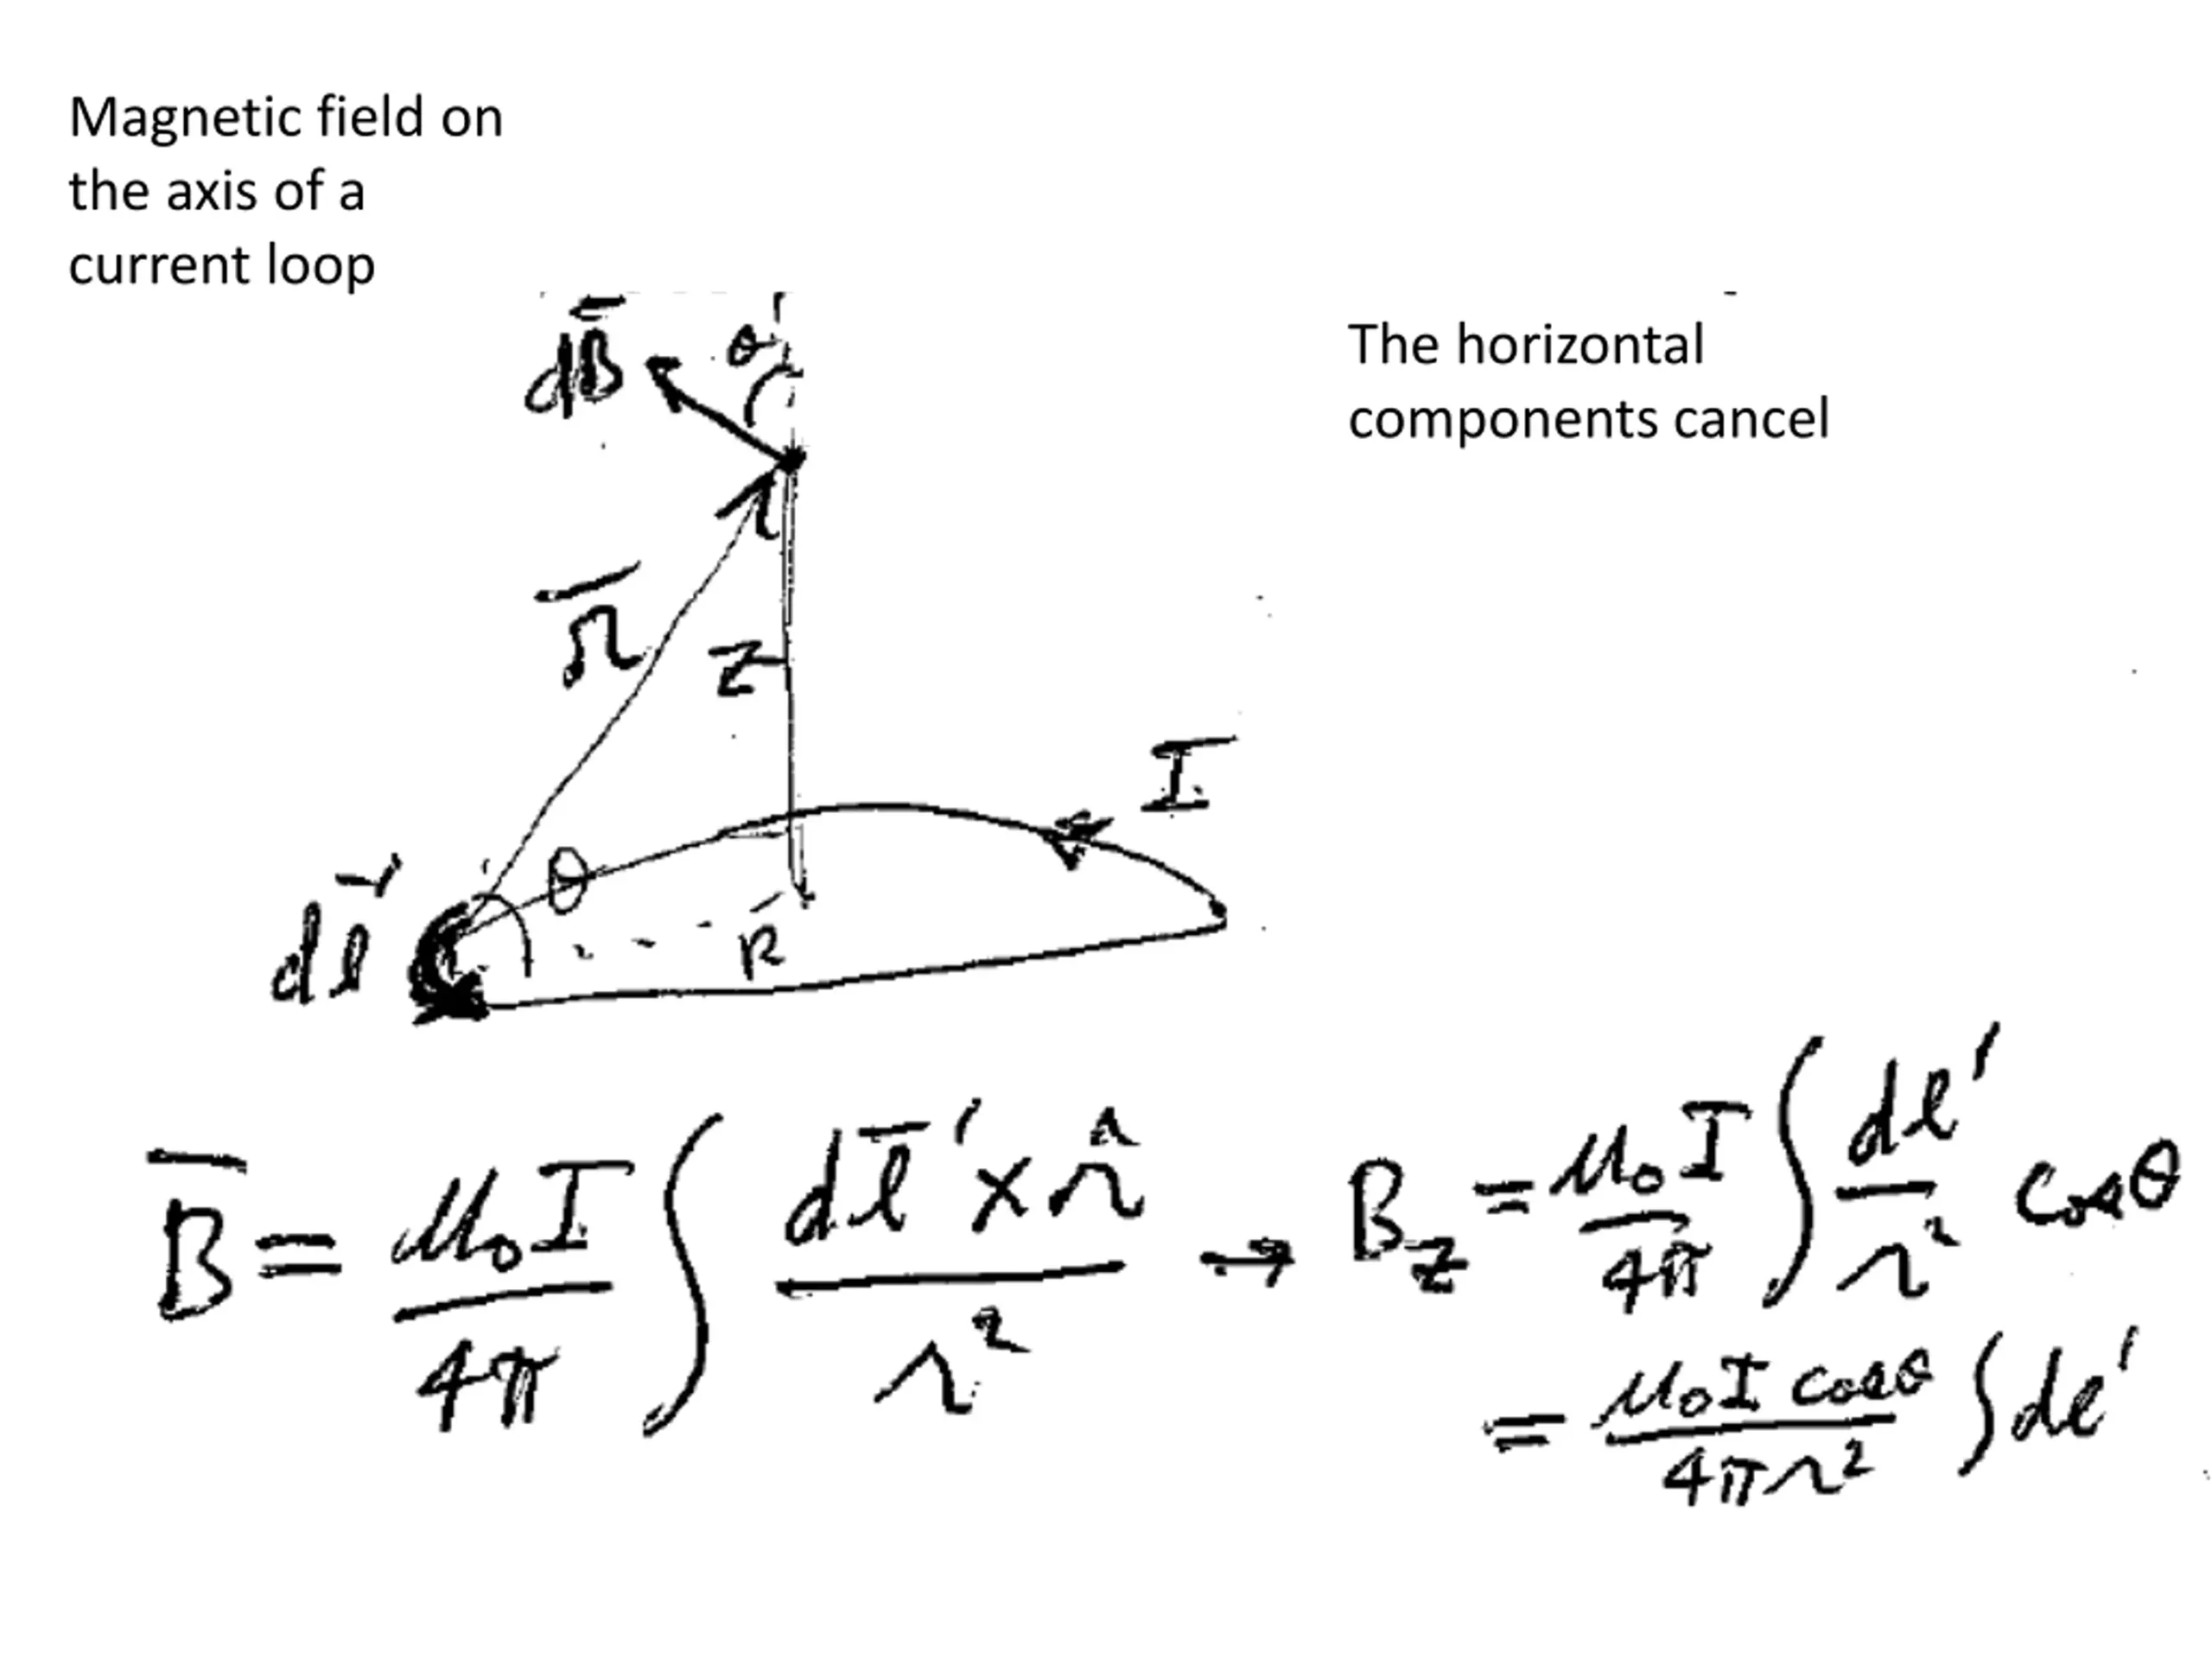 Magnetic field on
the axis of a
current loop
The horizontal
components cancel
dB̄ θ
r̄
z
I
θ
dl̄′
R
B̄ = μ₀I/4π ∫ dl̄′ × r̂ / r² → B_z = μ₀I/4π ∫ dl′/r² cosθ
= μ₀I cosθ / 4πr² ∫ dl′